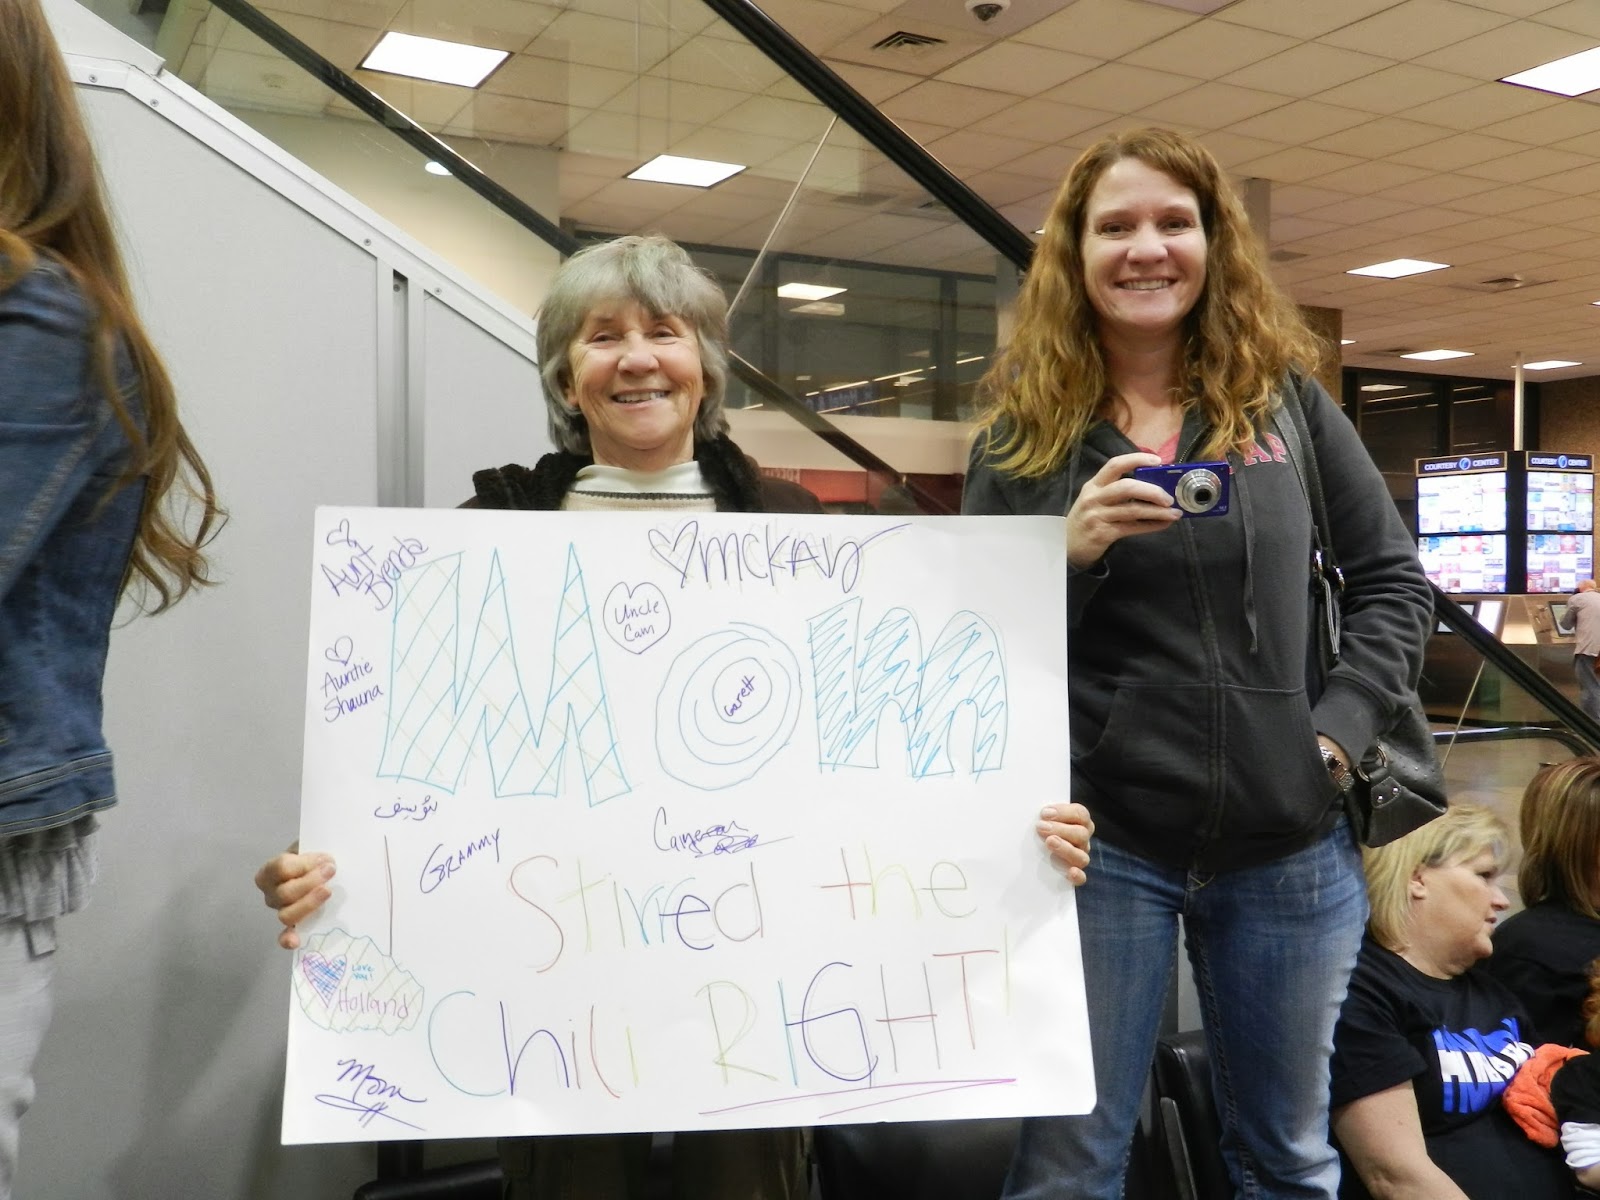 Aunt
Brenda
McKay
Uncle
Cam
Auntie
Shauna
Mom
Garett
يوسف
Grammy
Cameron
I Stirred the
Chili RIGHT!
Love
you!
Holland
Mom
COURTESY CENTER
COURTESY CENTER